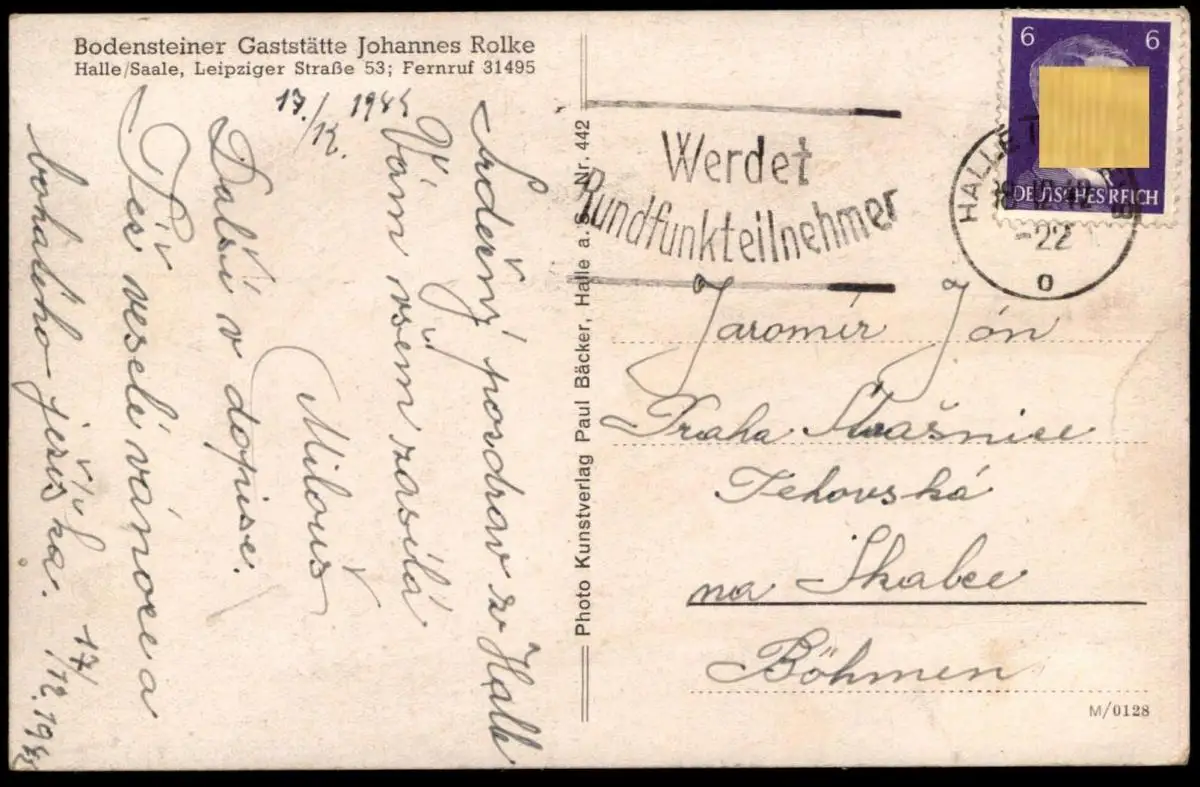 Bodensteiner Gaststätte Johannes Rolke
Halle/Saale, Leipziger Straße 53; Fernruf 31495
17./12.
Srdečný pozdrav z Halle
Vám všem zasílá
Milouš
Další v dopise.
Též veselé vánoce a
bohatého ježíška.
17/12.19
Photo Kunstverlag Paul Bäcker, Halle a. S. Nr. 442
Werdet
Rundfunkteilnehmer
6 6
DEUTSCHES REICH
HALLE
-22
o
Jaromír Jón
Praha Strašnice
Tehovská
na Skalce
Böhmen
M/0128